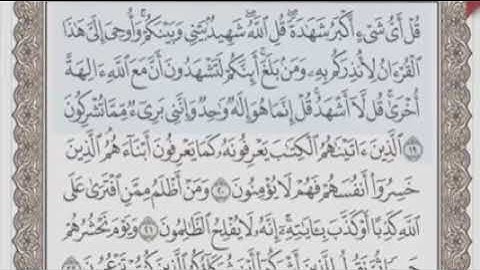 قُلْ أَىُّ شَىْءٍ أَكْبَرُ شَهَٰدَةً ۖ قُلِ ٱللَّهُ ۖ شَهِيدٌۢ بَيْنِى وَبَيْنَكُمْ ۚ وَأُوحِىَ إِلَىَّ هَٰذَا
ٱلْقُرْءَانُ لِأُنذِرَكُم بِهِۦ وَمَنۢ بَلَغَ ۚ أَئِنَّكُمْ لَتَشْهَدُونَ أَنَّ مَعَ ٱللَّهِ ءَالِهَةً
أُخْرَىٰ ۚ قُل لَّآ أَشْهَدُ ۚ قُلْ إِنَّمَا هُوَ إِلَٰهٌ وَٰحِدٌ وَإِنَّنِى بَرِىٓءٌ مِّمَّا تُشْرِكُونَ
١٩ ٱلَّذِينَ ءَاتَيْنَٰهُمُ ٱلْكِتَٰبَ يَعْرِفُونَهُۥ كَمَا يَعْرِفُونَ أَبْنَآءَهُمُ ٱلَّذِينَ
خَسِرُوٓا۟ أَنفُسَهُمْ فَهُمْ لَا يُؤْمِنُونَ ٢٠ وَمَنْ أَظْلَمُ مِمَّنِ ٱفْتَرَىٰ عَلَى
ٱللَّهِ كَذِبًا أَوْ كَذَّبَ بِـَٔايَٰتِهِۦٓ ۗ إِنَّهُۥ لَا يُفْلِحُ ٱلظَّٰلِمُونَ ٢١ وَيَوْمَ نَحْشُرُهُمْ